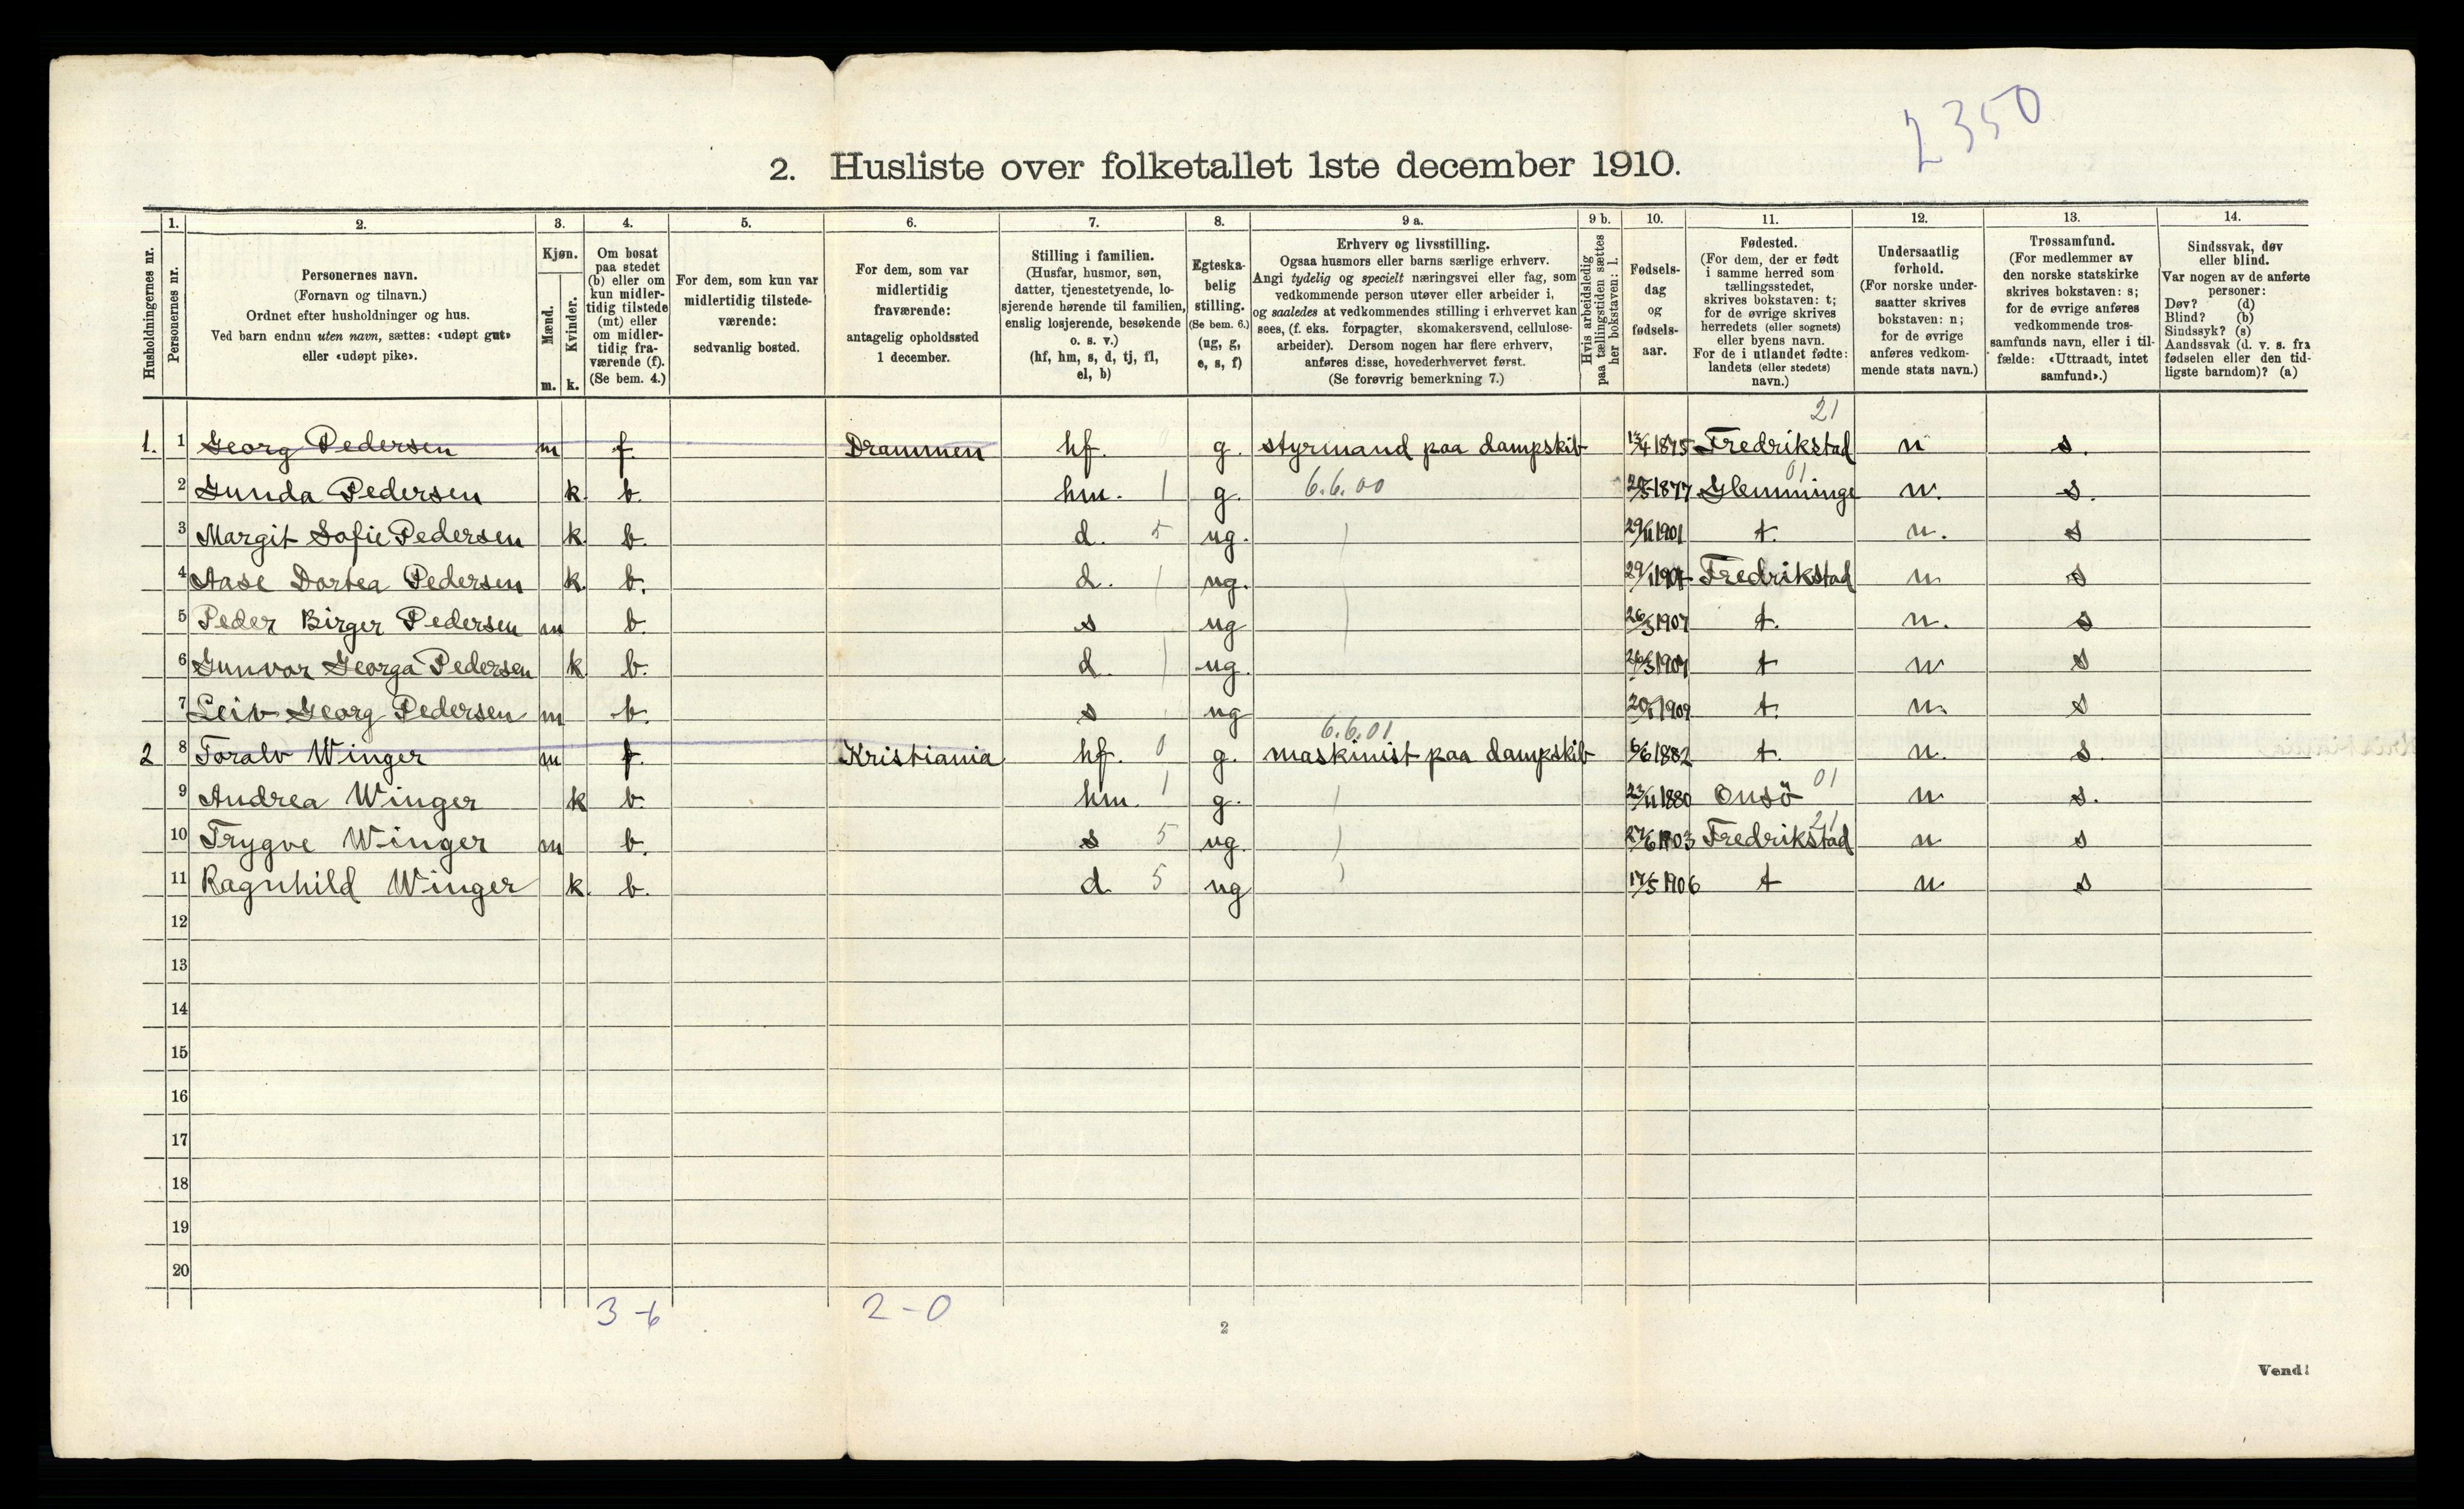 2350
2. Husliste over folketallet 1ste december 1910.
Husholdningernes nr.
1.
Personernes nr.
2.
Personernes navn.
(Fornavn og tilnavn.)
Ordnet efter husholdninger og hus.
Ved barn endnu uten navn, sættes: «udøpt gut»
eller «udøpt pike».
3.
Kjøn.
Mænd.
Kvinder.
m. k.
4.
Om bosat
paa stedet
(b) eller om
kun midler-
tidig tilstede
(mt) eller
om midler-
tidig fra-
værende (f).
(Se bem. 4.)
5.
For dem, som kun var
midlertidig tilstede-
værende:
sedvanlig bosted.
6.
For dem, som var
midlertidig
fraværende:
antagelig opholdssted
1 december.
7.
Stilling i familien.
(Husfar, husmor, søn,
datter, tjenestetyende, lo-
sjerende hørende til familien,
enslig losjerende, besøkende
o. s. v.)
(hf, hm, s, d, tj, fl,
el, b)
8.
Egteska-
belig
stilling.
(Se bem. 6.)
(ug, g,
e, s, f)
9 a.
Erhverv og livsstilling.
Ogsaa husmors eller barns særlige erhverv.
Angi tydelig og specielt næringsvei eller fag, som
vedkommende person utøver eller arbeider i,
og saaledes at vedkommendes stilling i erhvervet kan
sees, (f. eks. forpagter, skomakersvend, cellulose-
arbeider). Dersom nogen har flere erhverv,
anføres disse, hovederhvervet først.
(Se forøvrig bemerkning 7.)
9 b.
Hvis arbeidsledig
paa tællingstiden sættes
her bokstaven: l.
10.
Fødsels-
dag
og
fødsels-
aar.
11.
Fødested.
(For dem, der er født
i samme herred som
tællingsstedet,
skrives bokstaven: t;
for de øvrige skrives
herredets (eller sognets)
eller byens navn.
For de i utlandet fødte:
landets (eller stedets)
navn.)
12.
Undersaatlig
forhold.
(For norske under-
saatter skrives
bokstaven: n;
for de øvrige
anføres vedkom-
mende stats navn.)
13.
Trossamfund.
(For medlemmer av
den norske statskirke
skrives bokstaven: s;
for de øvrige anføres
vedkommende tros-
samfunds navn, eller i til-
fælde: «Uttraadt, intet
samfund».)
14.
Sindssvak, døv
eller blind.
Var nogen av de anførte
personer:
Døv? (d)
Blind? (b)
Sindssyk? (s)
Aandssvak (d. v. s. fra
fødselen eller den tid-
ligste barndom)? (a)
21
1. 1 Georg Pedersen m f. Drammen hf. 0 g. styrmand paa dampskib 1875 Fredrikstad n s.
6.6.00 01
2 Gunda Pedersen k. b. hm. 1 g. 1877 Glemminge n. s.
3 Margit Sofie Pedersen k. b. d. 5 ug. 29/11 1901 t. n. s
4 Aase Dortea Pedersen k. b. d. ug. Fredrikstad n s
5 Peder Birger Pedersen m b. s ug 26/3 1907 t. n. s
6 Gunvor Georga Pedersen k b. d ug. 26/3 1907 t n s
7 Leiv Georg Pedersen m b. s ug 1909 t. n. s
6.6.01
2 8 Toralv Winger m f. Kristiania hf. 0 g. maskinist paa dampskib 6/6 1882 t. n. s.
9 Andrea Winger k b. hm. 1 g. 23/11 1880 Onsö 01 n s.
21
10 Trygve Winger m b. s 5 ug. 27/6 1903 Fredrikstad n s
11 Ragnhild Winger k. b. d 5 ug 17/5 1906 t n s
12
13
14
15
16
17
18
19
20
3-6 2-0
2
Vend!